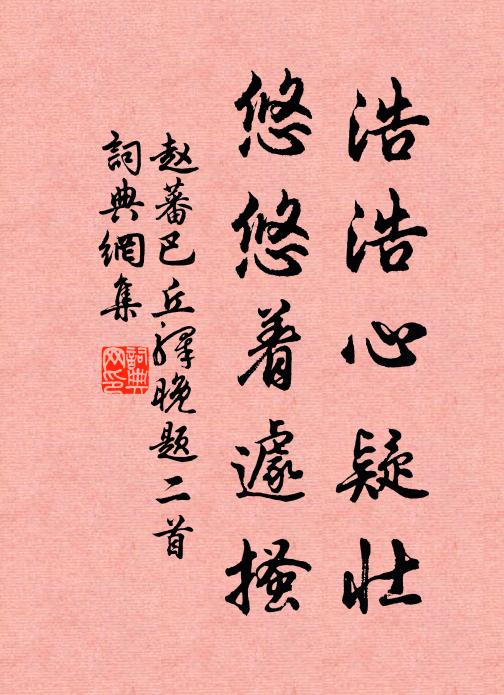 浩浩心疑壮
悠悠着遽搔
赵蕃巴丘驿晚题二首
詞典網集
詞典網印